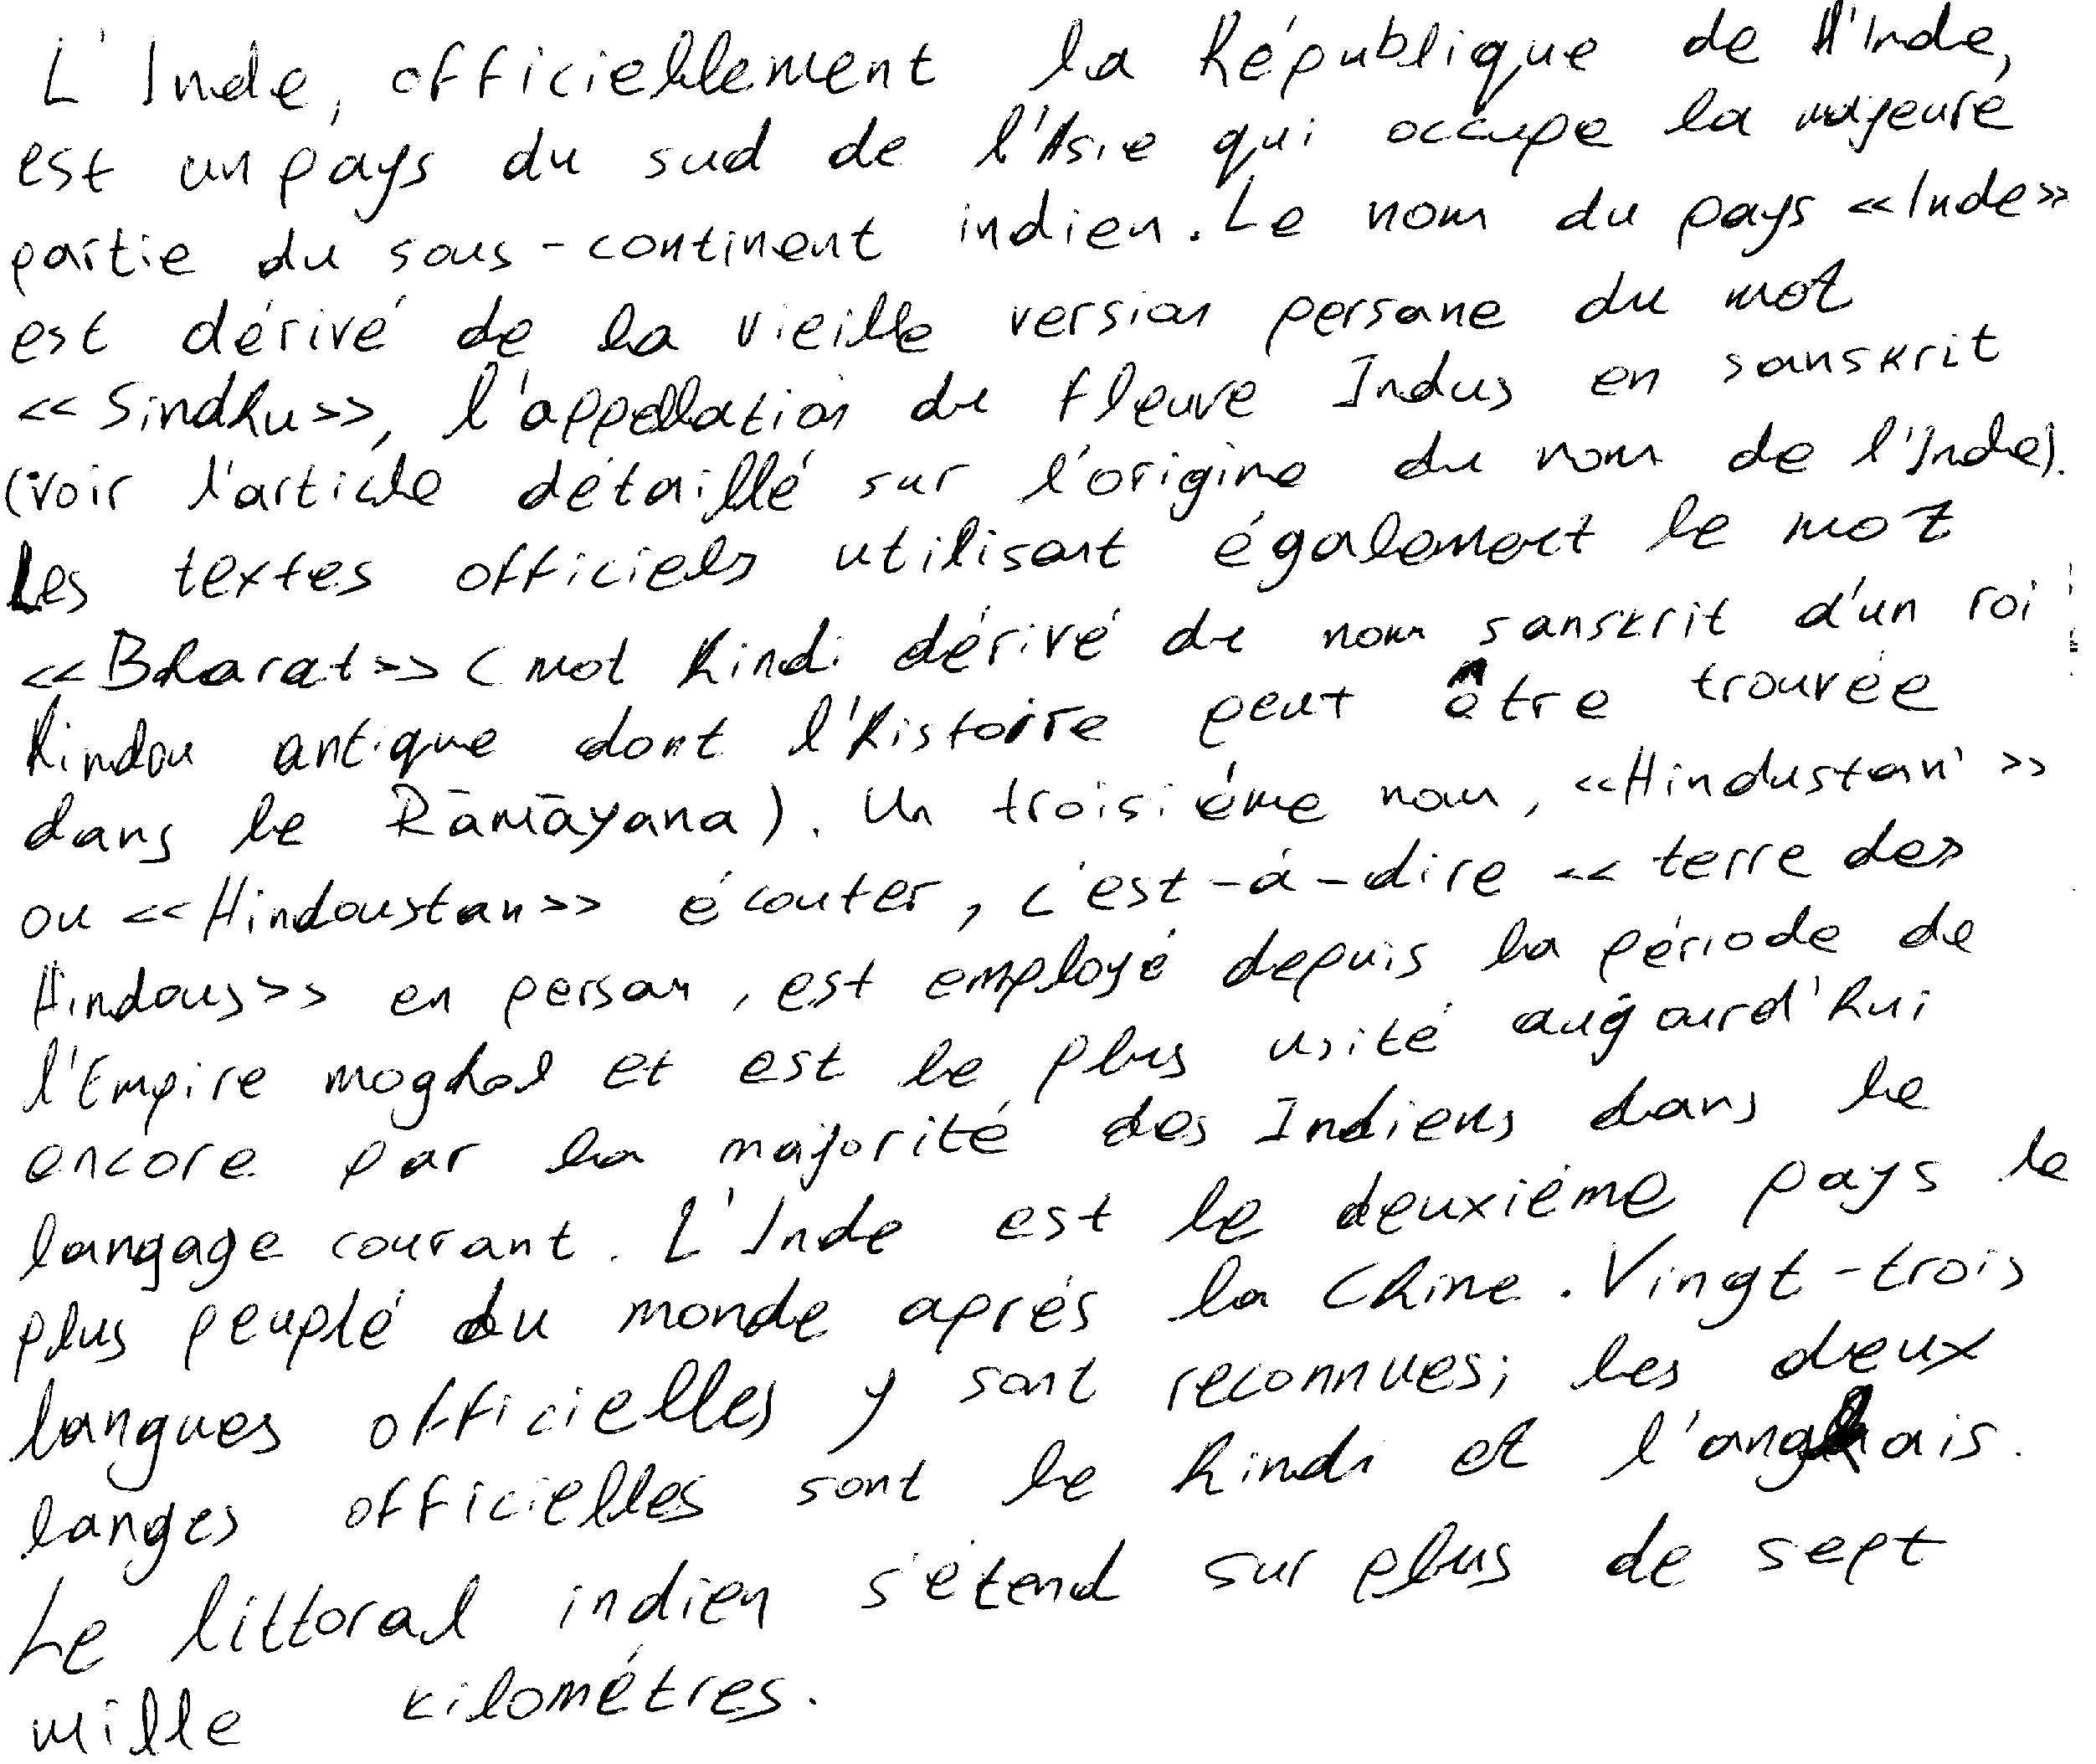 L'Inde, officiellement la République de l'Inde,
est un pays du sud de l'Asie qui occupe la majeure
partie du sous-continent indien. Le nom du pays «Inde»
est dérivé de la vieille version persane du mot
«Sindhu», l'appellation du fleuve Indus en sanskrit
(voir l'article détaillé sur l'origine du nom de l'Inde).
Les textes officiels utilisent également le mot
«Bharat» (mot hindi dérivé du nom sanskrit d'un roi
hindou antique dont l'histoire peut être trouvée
dans le Rāmāyana). Un troisiéme nom, «Hindustan»
ou «Hindoustan» écouter, c'est-à-dire «terre des
Hindous» en persan, est employé depuis la période de
l'Empire moghol et est le plus usité aujourd'hui
encore par la majorité des Indiens dans le
langage courant. L'Inde est le deuxiéme pays le
plus peuplé du monde aprés la Chine. Vingt-trois
langues officielles y sont reconnues; les deux
langes officielles sont le hindi et l'anglais.
Le littoral indien s'étend sur plus de sept
mille kilométres.